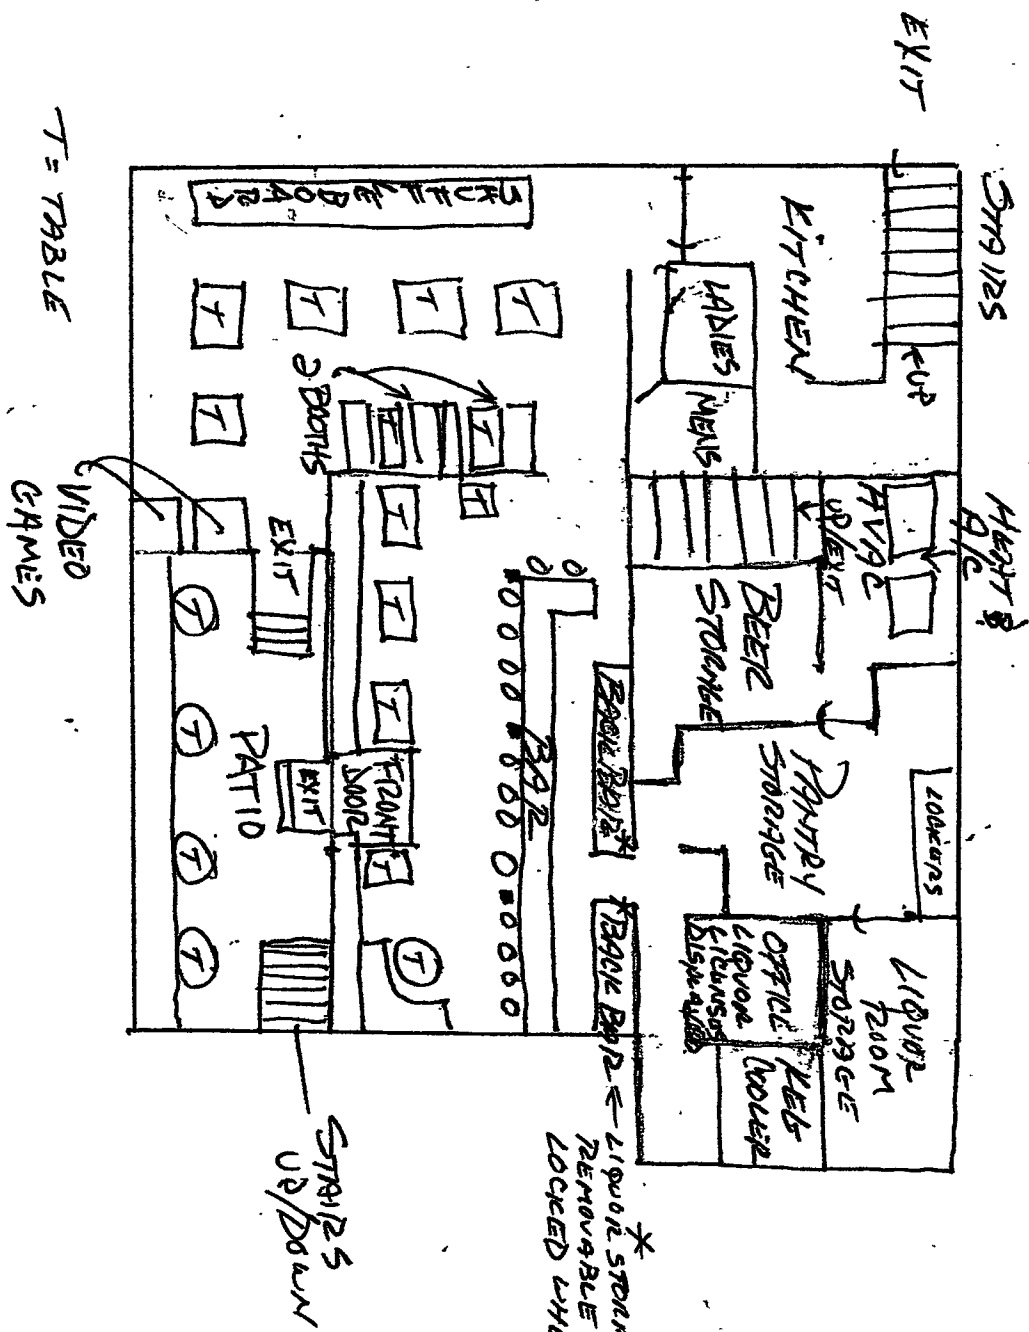 EXIT
STAIRS
KITCHEN
←UP
LADIES
MENS
HEAT &
A/C
HVAC
UP/EXIT
BEER
STORAGE
PANTRY
STORAGE
LOCKERS
LIQUOR
ROOM
STORAGE
OFFICE
LIQUOR
LICENSES
DISPLAYED
KEG
COOLER
SHUFFLEBOARD
T
T
T
T
T
2 BOOTHS
T
T
T
T
T
T
T
T
BACK BAR *
* BACK BAR ← LIQUOR
*
REMOVABLE
LOCKED
BAR
FRONT
DOOR
EXIT
EXIT
PATIO
T
T
T
T
STAIRS
UP/DOWN
VIDEO
GAMES
T = TABLE